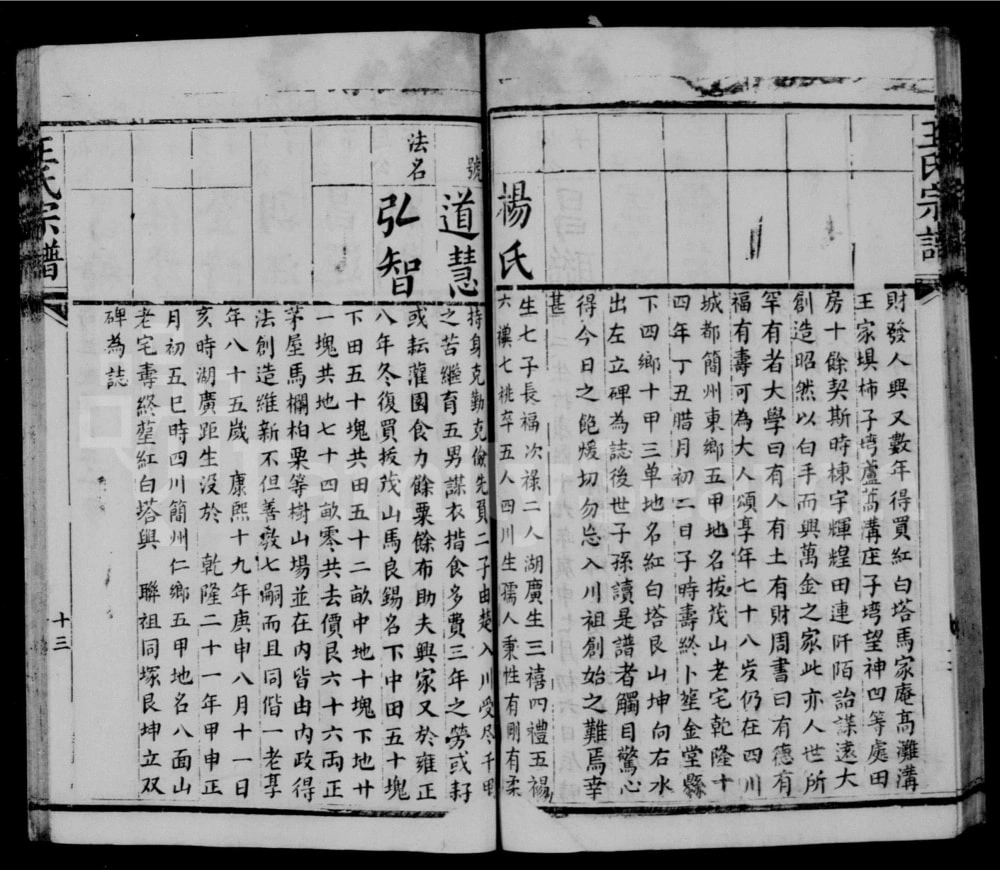 王氏宗譜
財發人興又數年得買紅白塔馬家庵高灘溝
王家埧柿子塆蘆蒿溝庄子塆望神凹等處田
房十餘契斯時棟宇輝煌田連阡陌詒謀遠大
創造昭然以白手而興萬金之家此亦人世所
罕有者大學曰有人有土有財周書曰有德有
福有壽可為大人頌享年七十八岁仍在四川
成都簡州東鄉五甲地名拔茂山老宅乾隆十
四年丁丑腊月初二日子時壽終卜塟金堂縣
下四鄉十甲三單地名紅白塔艮山坤向右水
出左立碑為誌後世子孫讀是譜者觸目驚心
得今日之飽煖切勿忘入川祖創始之難焉幸
甚
楊氏
生七子長福次祿二人湖廣生三禧四禮五禓
六禩七祧卒五人四川生孺人秉性有剛有柔
號
道慧
持身克勤克儉先負二子由楚入川受尽千里
之苦繼育五男謀衣措食多費三年之勞或耔
或耘灌園食力餘粟餘布助夫興家又於雍正
法名
弘智
八年冬復買拔茂山馬良錫名下中田五十塊
下田五十塊共田五十二畝中地十塊下地廿
一塊共地七十四畝零共去價艮六十六両正
茅屋馬欄柏栗等樹山場並在內皆由內政得
法創造維新不但善教七嗣而且同偕一老享
年八十五歲 康熙十九年庚申八月十一日
亥時湖廣距生沒於 乾隆二十一年甲申正
月初五巳時四川簡州仁鄉五甲地名八面山
老宅壽終塟紅白塔與 聯祖同塚艮坤立双
碑為誌
王氏宗譜
十三